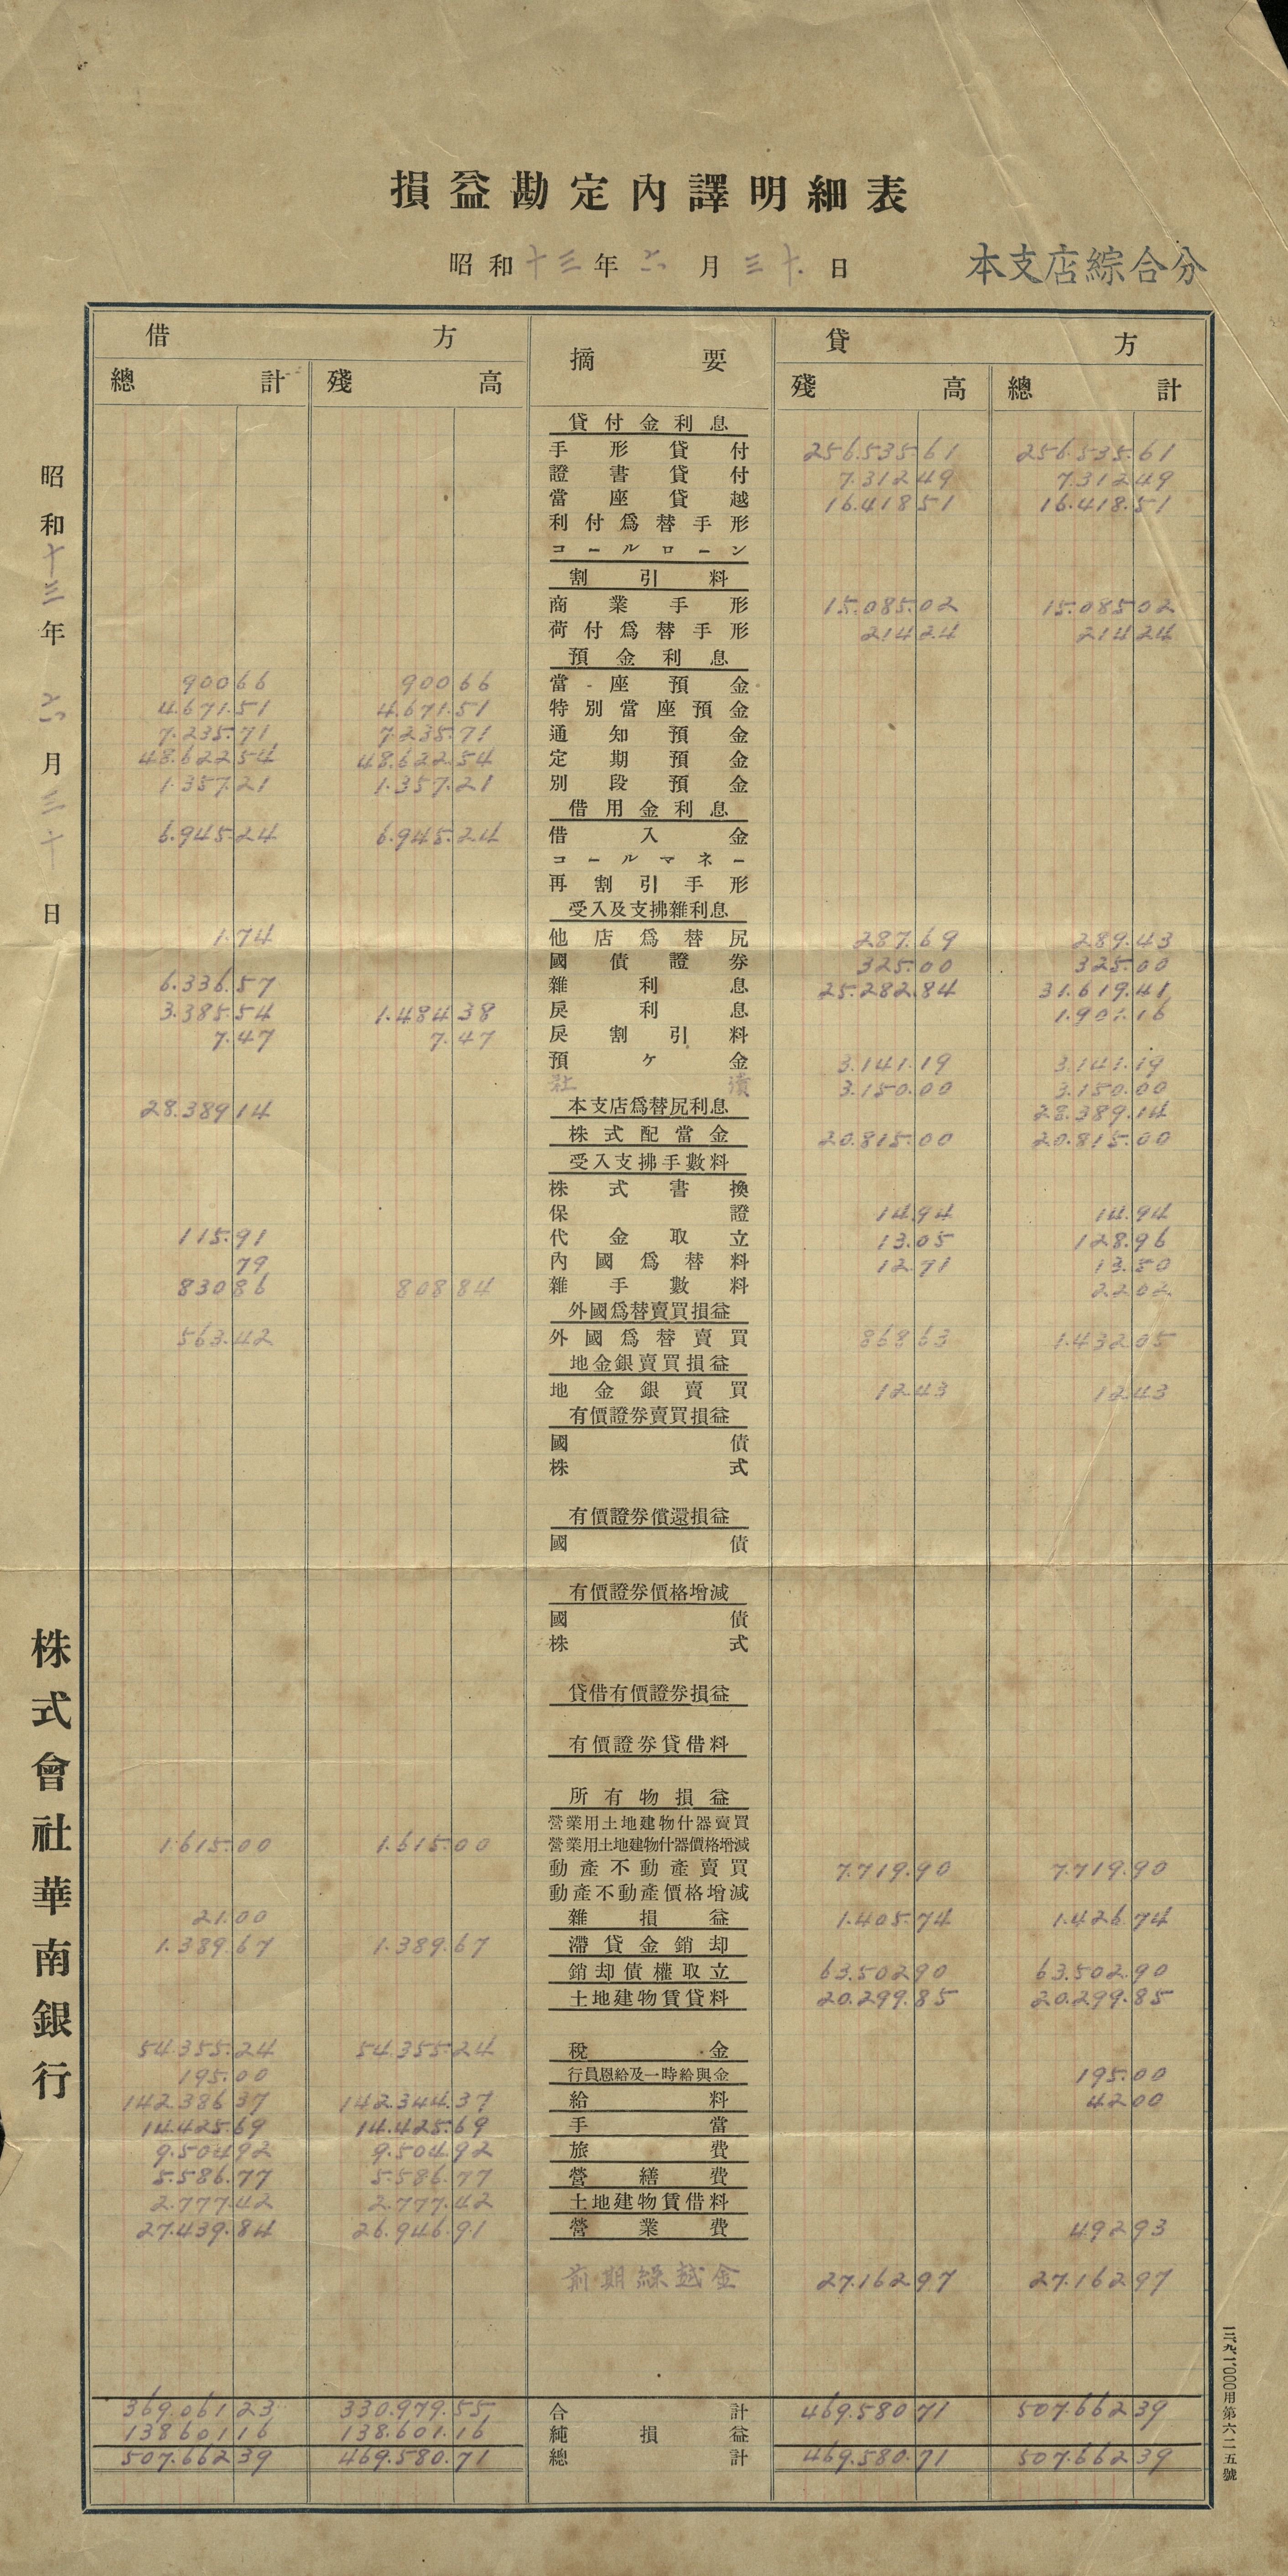 損益勘定內譯明細表
昭和十三年六月三十日
本支店綜合分
借方 摘要 貸方
總計 殘高 殘高 總計
貸付金利息
手形貸付 256.535.61 256.535.61
證書貸付 7.312 49 7.312 49
當座貸越 16.418 51 16.418.51
利付爲替手形
コールローン
割引料
商業手形 15.085.02 15.085 02
荷付爲替手形 214 24 214 24
預金利息
900 66 900 66 當座預金
4.671.51 4.671.51 特別當座預金
7.235.71 7.235.71 通知預金
48.622 54 48.622.54 定期預金
1.357.21 1.357.21 別段預金
借用金利息
6.945.24 6.945.24 借入金
コールマネー
再割引手形
受入及支拂雜利息
1.74 他店爲替尻 287.69 289.43
國債證券 325.00 325.00
6.336.57 雜利息 25.282.84 31.619.41
3.385.54 1.484 38 戾利息 1.901.16
7.47 7.47 戾割引料
預ケ金 3.141.19 3.141.19
社債 3.150.00 3.150.00
28.389 14 本支店爲替尻利息 28.389.14
株式配當金 20.815.00 20.815.00
受入支拂手數料
株式書換
保證 14.94 14.94
115.91 代金取立 13.05 128.96
79 內國爲替料 12.71 13.50
830 86 808 84 雜手數料 22 02
外國爲替賣買損益
563.42 外國爲替賣買 868 63 1.432 05
地金銀賣買損益
地金銀賣買 12 43 12 43
有價證券賣買損益
國債
株式
有價證券償還損益
國債
有價證券價格增減
國債
株式
貸借有價證券損益
有價證券貸借料
所有物損益
營業用土地建物什器賣買
1.615.00 1.615.00 營業用土地建物什器價格增減
動產不動產賣買 7.719.90 7.719.90
動產不動產價格增減
21.00 雜損益 1.405.74 1.426 74
1.389.67 1.389.67 滯貸金銷却
銷却債權取立 63.502 90 63.502.90
土地建物賃貸料 20.299.85 20.299.85
54.355.24 54.355 24 稅金
195.00 行員恩給及一時給與金 195.00
142.386 37 142.344.37 給料 42 00
14.425.69 14.425.69 手當
9.504 92 9.504 92 旅費
5.586.77 5.586.77 營繕費
2.777.42 2.777.42 土地建物賃借料
27.439.84 26.946.91 營業費 492 93
前期繰越金 27.162 97 27.162 97
369.061 23 330.979.55 合計 469.580 71 507.662 39
138 601 16 138.601.16 純損益
507.662 39 469.580.71 總計 469.580.71 507.662 39
昭和十三年六月三十日
株式會社華南銀行
一三、九、一、〇〇〇用第六二五號